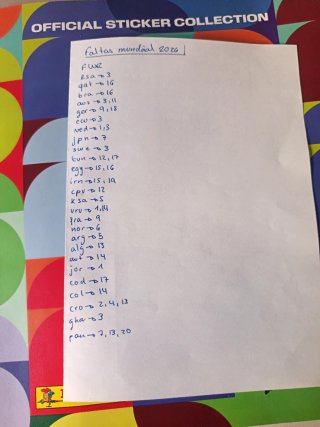 OFFICIAL STICKER COLLECTION
faltas mundial 2026
FWC
rsa → 3
qat → 16
bra → 16
aus → 3, 11
ger → 9, 18
ecu → 3
ned → 1, 3
jpn → 7
swe → 3
tun → 12, 17
egy → 15, 16
irn → 15, 19
cpv → 12
ksa → 5
uru → 1, 14
fra → 9
nor → 6
arg → 5
alg → 13
aut → 14
jor → 1
cod → 17
col → 14
cro → 2, 4, 13
gha → 3
pan → 7, 13, 20